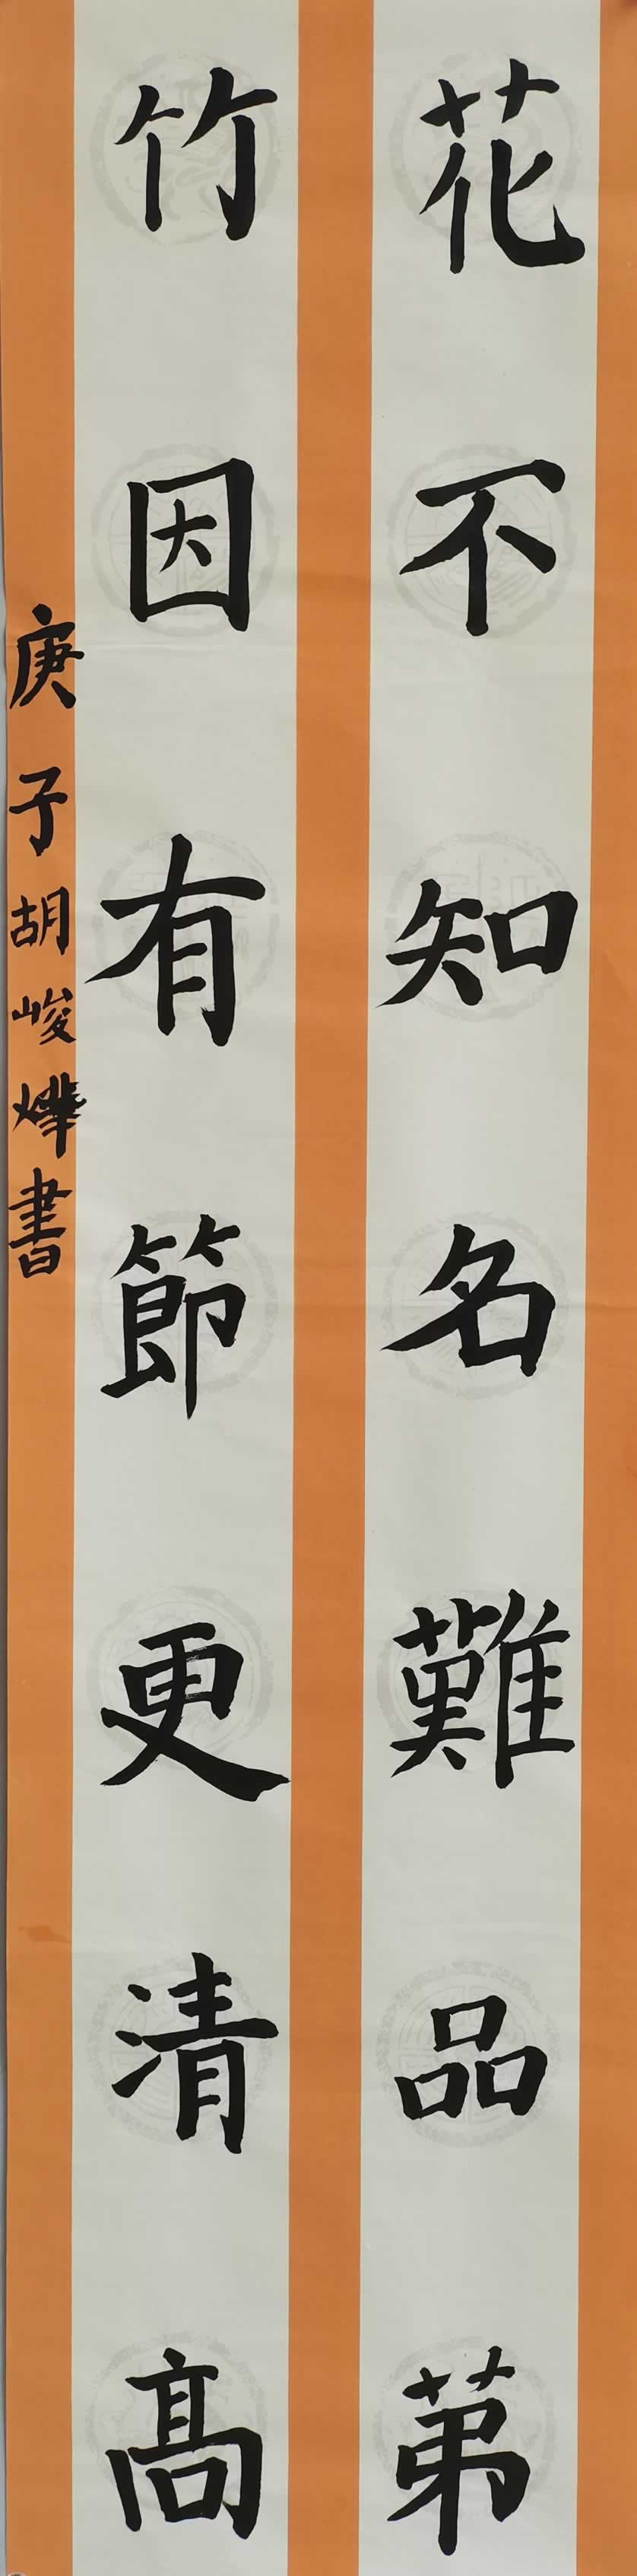 花不知名難品苐
竹因有節更清高
庚子胡峻燁書